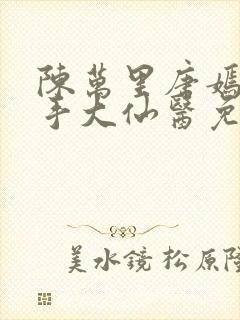 陳萬里唐嫣
手大仙醫免
美水鏡松原隆